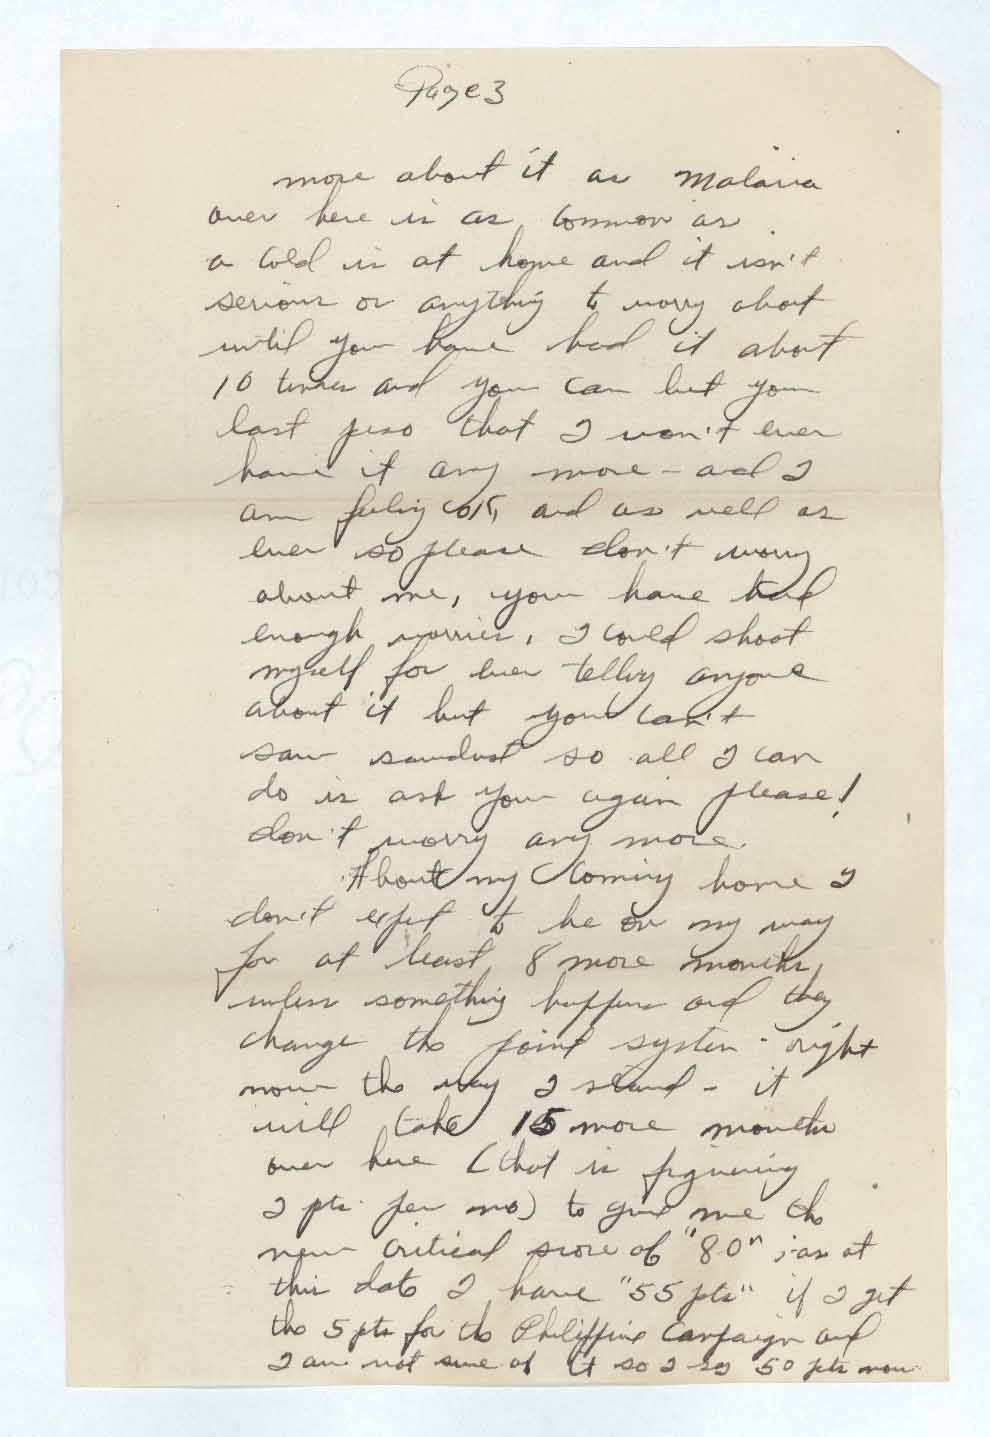 Page 3
more about it as Malaria
over here is as common as
a cold is at home and it isn't
serious or anything to worry about
until you have had it about
10 times and you can bet your
last peso that I won't ever
have it any more - and I
am feeling OK, and as well as
ever so please don't worry
about me, you have had
enough worries, I could shoot
myself for ever telling anyone
about it but you can't
saw sawdust so all I can
do is ask you again please!
don't worry any more.
About my coming home I
don't expect to be on my way
for at least 8 more months,
unless something happens and they
change the point system - right
now the way I stand - it
will take 15 more months
over here (that is figuring
2 pts. per mo) to give me the
new critical score of "80" ; as at
this date I have "55 pts" if I get
the 5 pts for the Philippine Campaign and
I am not sure of it so I say 50 pts now